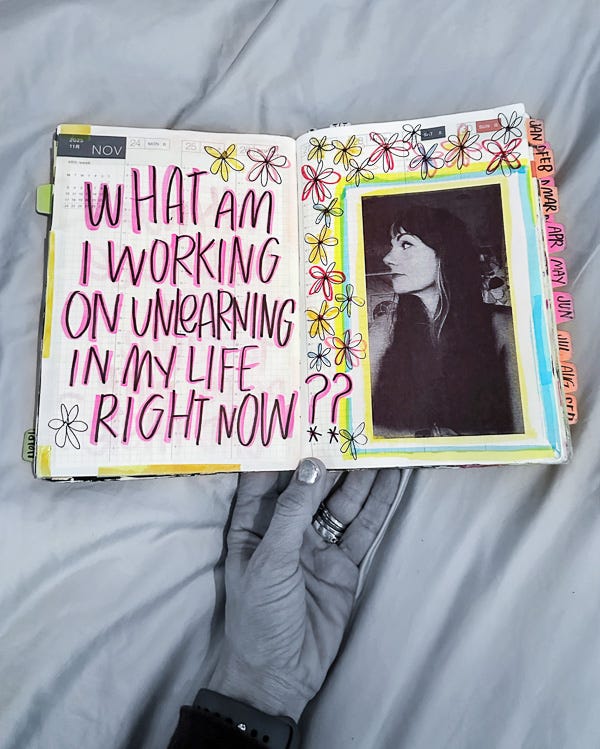 2025 NOV 24 MON 25
11月
48th week
M T W T F S S
SAT SUN
WHAT AM
I WORKING
ON UNLEARNING
IN MY LIFE
RIGHT NOW ??
JAN
FEB
MAR
APR
MAY
JUN
JUL
AUG
SEP